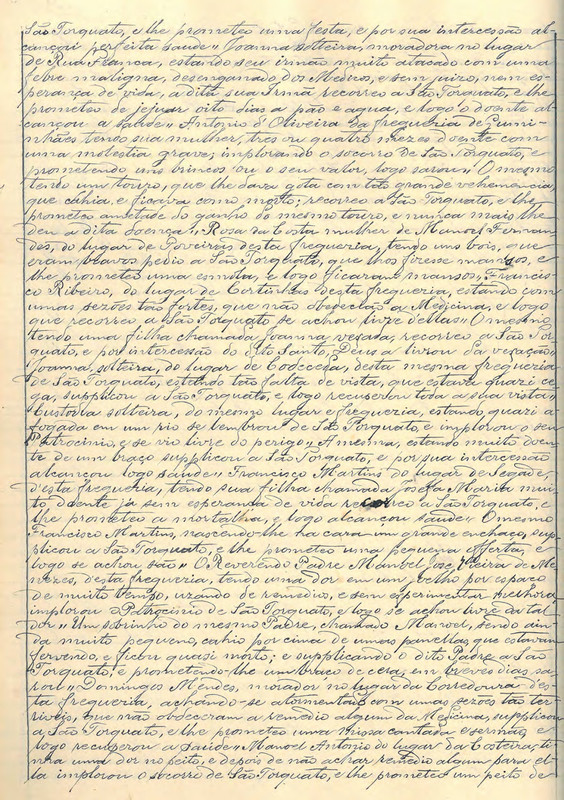 São Torquato, e lhe prometeo uma festa, e por sua intercessão al-
cançou perfeita saude » Joanna solteira, moradora no lugar
de Rua Franca, estando seu irmão muito atacado com uma
febre maligna, desenganado dos Medicos, e sem juizo, nem es-
perança de vida, a dita sua Irmã recorreo a São Torquato, e lhe
prometeo de jejuar oito dias a pão e agua, e logo o doente al-
cançou a saude » Antonio d'Oliveira da freguezia de
tendo sua mulher, tres ou quatro mezes doente com
uma molestia grave; implorando o socorro de São Torquato, e
prometendo uns brincos ou o seu valor, logo sarou » O mesmo
tendo um touro, que lhe dava gota com tão grande vehemencia,
que cahia, e ficava como morto; recorreo a São Torquato, e lhe
prometeo ametade do ganho do mesmo touro, e nunca mais lhe
deu a dita doença » Rosa da Costa mulher de Manoel Fernan-
des, do lugar de desta freguezia, tendo uns bois, que
eram bravos pedio a São Torquato, que lhos fizesse mansos, e
lhe prometeo uma esmola, e logo ficaram mansos, » Francis-
co Ribeiro, do lugar de Cortinhas desta freguezia, estando com
umas sezões tão fortes, que não obedecião a Medicina, e logo
que recorreo, a São Torquato se achou livre dellas » O mesmo
tendo uma filha chamada Joanna vexada, recorreo a São Tor-
quato, e por intercessão do dito Santo, Deus a livrou da vexação »
Joanna, solteira, do lugar de desta mesma freguezia
de São Torquato, estando tão falta de vista, que estava quazi ce-
ga, supplicou a São Torquato, e logo recuperou toda a sua vista »
Custodia solteira, do mesmo lugar e freguezia, estando quazi a-
fogada em um rio se lembrou de São Torquato, e implorou o seu
Patrocinio, e se vio livre do perigo » A mesma, estando muito doen-
te de um braço supplicou a São Torquato, e por sua intercessão
alcançou logo saude » Francisco Martins do lugar de Segade,
d'esta freguezia, tendo sua filha chamada Josefa Maria mui-
to, doente já sem esperança de vida recorreo a São Torquato, e
lhe prometeo a mortalha, e logo alcançou saude » O mesmo
Francisco Martins, nascendo-lhe na cara um grande enchaço, sup-
plicou a São Torquato, e lhe prometeo uma pequena offerta, e
logo se achou são » O Reverendo Padre Manoel José, de Me-
nezes, d'esta freguezia, tendo uma dor em um joelho por espaço
de muito tempo, uzando de remedio, e sem esperimentar melhora
implorou o Patrocinio de São Torquato, e logo se achou livre da tal
dor » Um sobrinho do mesmo Padre, chamado Manoel, sendo ain-
da muito pequeno, cahio por cima de umas panellas, que estavam
fervendo, e ficou quasi morto; e supplicando o dito Padre a São
Torquato, e prometendo-lhe um braço de cera, em breves dias sa-
rou » Domingos Mendes, morador no lugar da Corredoura des-
ta freguezia, achando-se atormentado com umas sezões tão ter-
riveis, que não obedeceram a remedio algum da Medicina, supplicou
a São Torquato, e lhe prometeo uma missa cantada e sermão, e
logo recuperou a saude » Manoel Antonio do lugar da Costeira, ti-
nha uma dor no peito, e depois de não achar remedio algum para el-
la implorou o socorro de São Torquato, e lhe prometeo um peito de